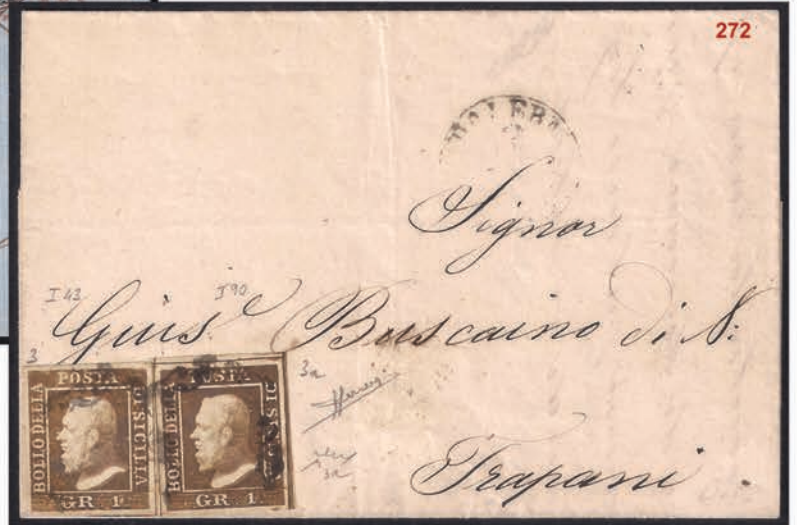 272
Signor
I 43 I 90
Gius.e Buscaino di N:
3
3a
BOLLO DELLA POSTA DI SICILIA GR. 1.
BOLLO DELLA POSTA DI SIC GR. 1.
3a
Trapani